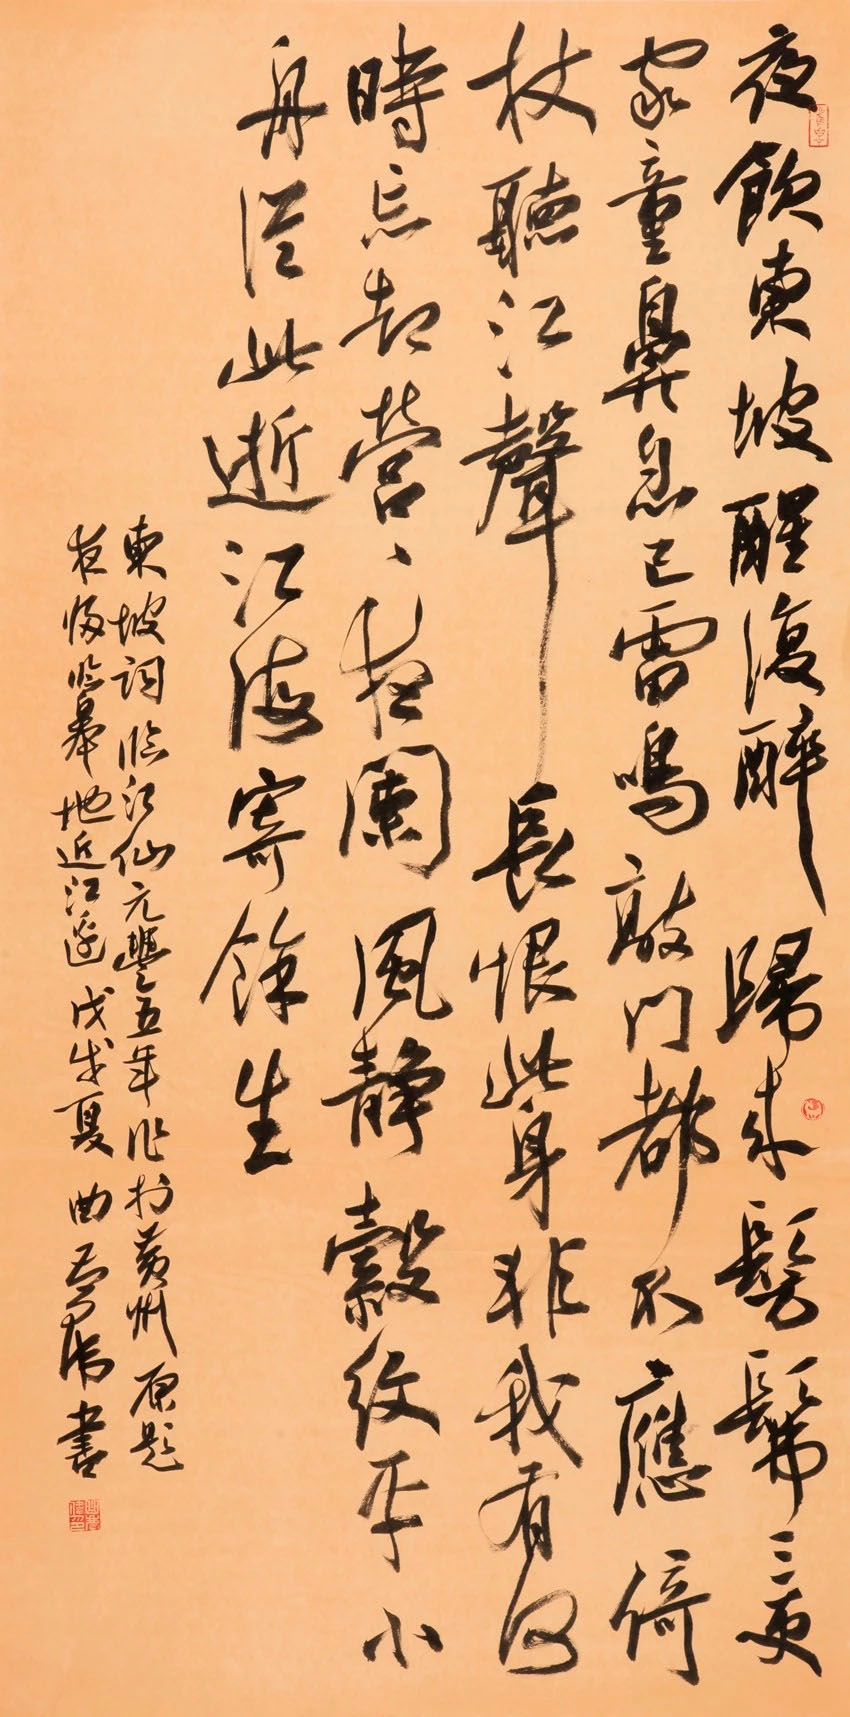 夜飲東坡醒復醉歸來髣髴三更
家童鼻息已雷鳴敲门都不應倚
杖聽江聲長恨此身非我有何
時忘却營、夜闌風静縠紋平小
舟從此逝江海寄餘生
東坡詞臨江仙元豐五年作於黄州原題
夜歸临皋地近江邊戊戌夏曲
書